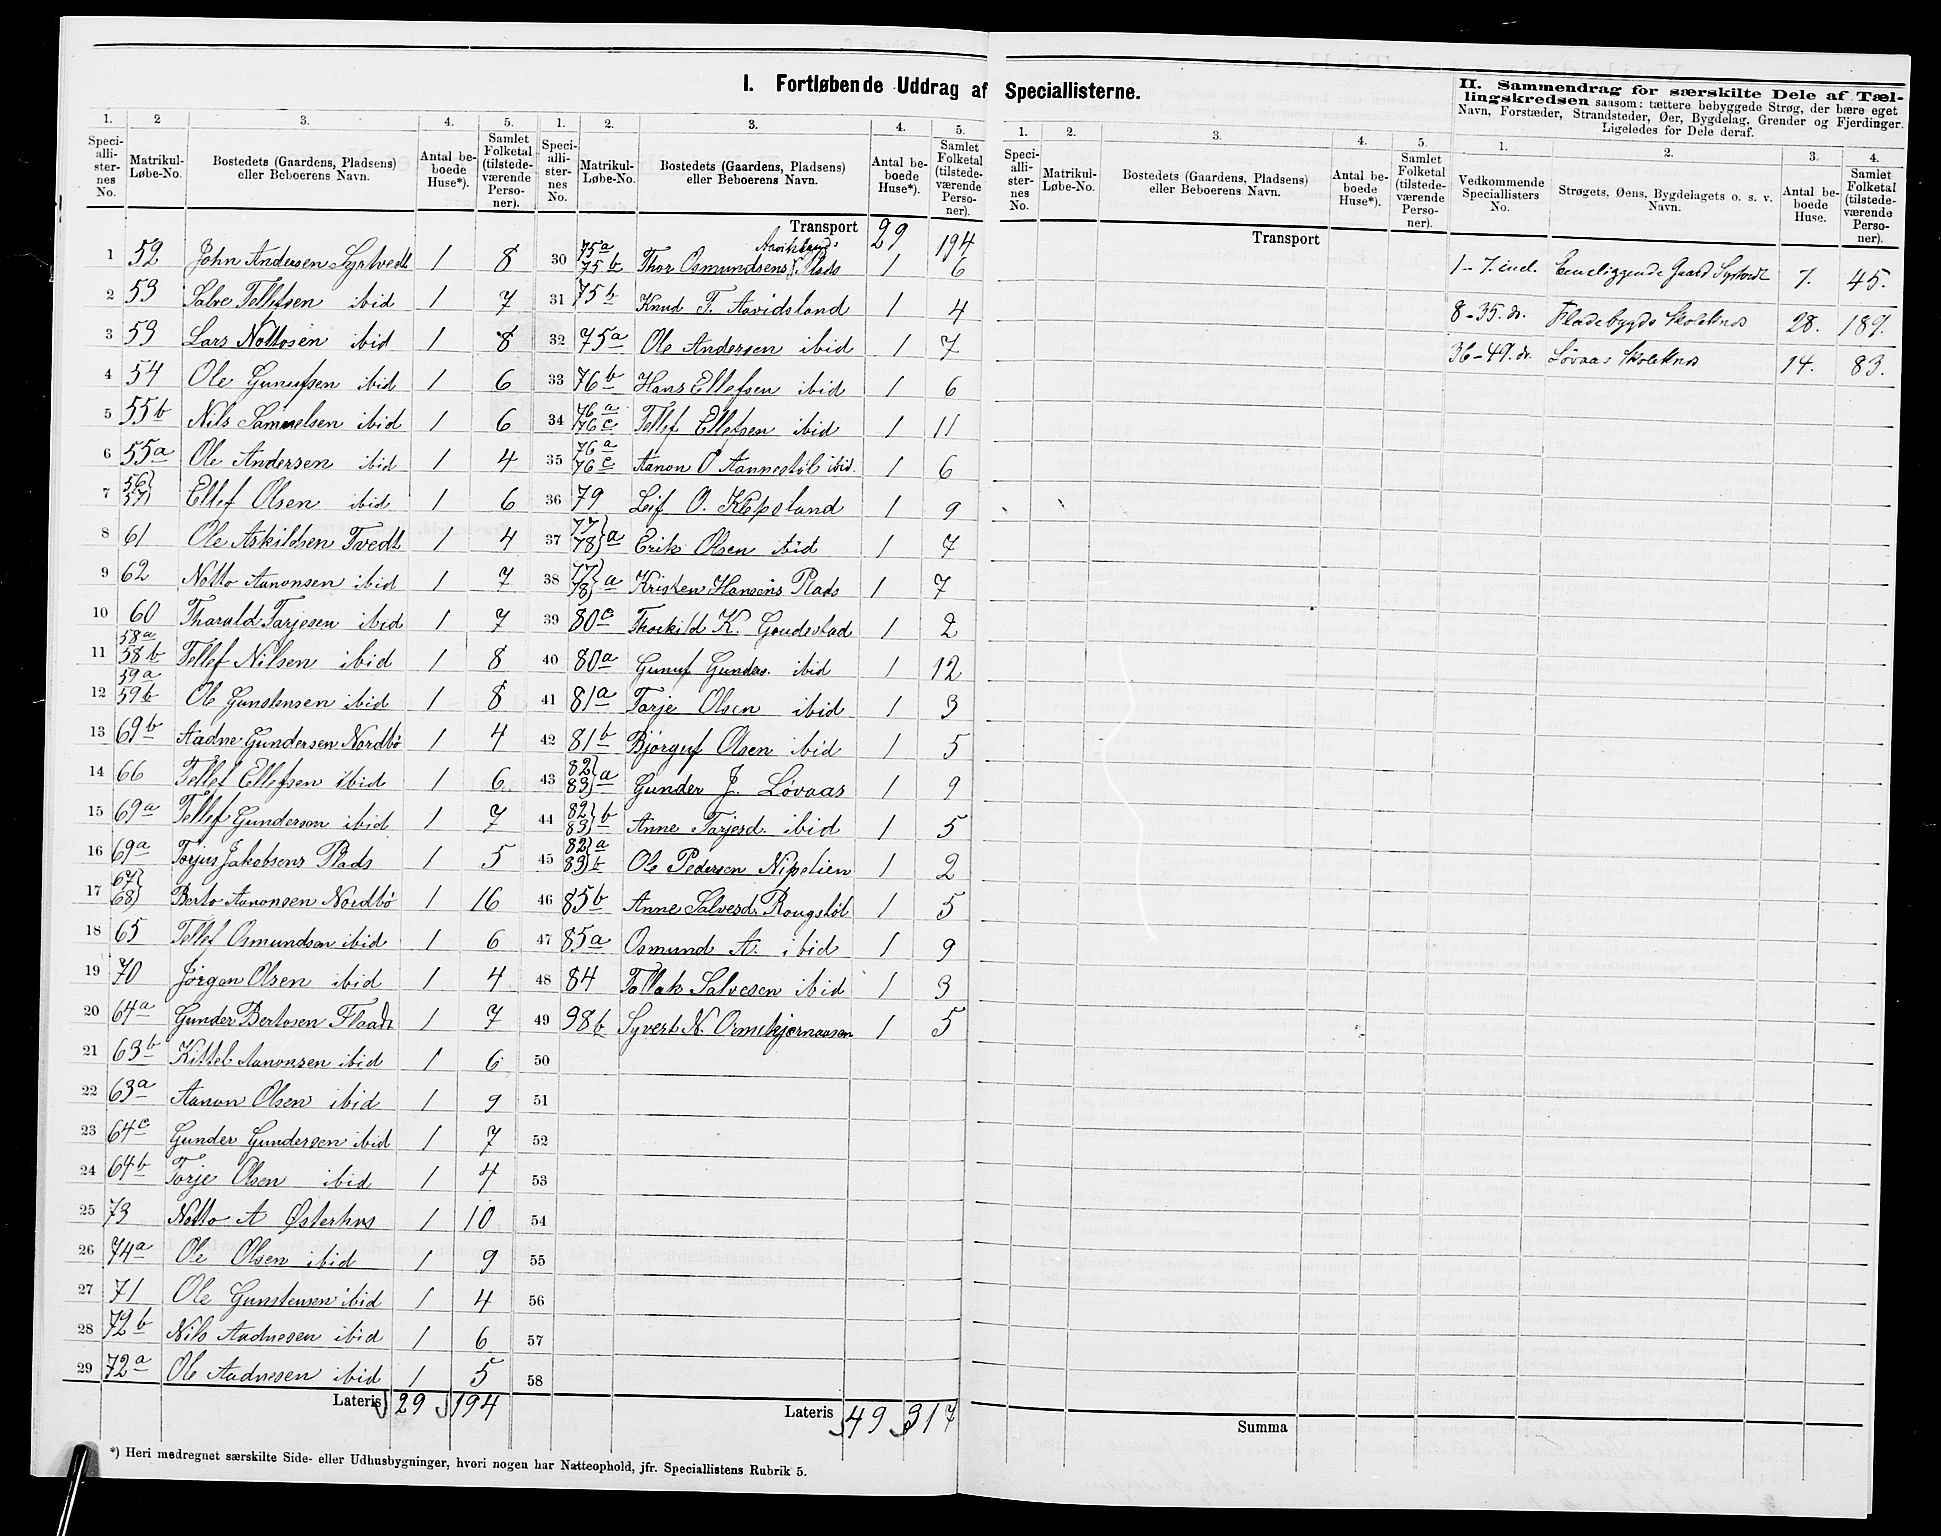 I. Fortløbende Uddrag af Speciallisterne.
1. 2 3. 4. 5.
Speciallisternes No. Matrikul-Løbe-No. Bostedets (Gaardens, Pladsens) eller Beboerens Navn. Antal beboede Huse*). Samlet Folketal (tilstedeværende Personer).
1 52 John Andersen Syrtvedt 1 8
2 53 Salve Tellefsen ibid 1 7
3 53 Lars Nottosen ibid 1 8
4 54 Ole Gunufsen ibid 1 6
5 55b Nils Samuelsen ibid 1 6
6 55a Ole Andersen ibid 1 4
7 56 57} Ellef Olsen ibid 1 6
8 61 Ole Askildsen Tvedt 1 4
9 62 Notto Aanonsen ibid 1 7
10 60 Tharald Tarjesen ibid 1 7
11 58a 58b Tellef Nilsen ibid 1 8
12 59a 59b Ole Gunstensen ibid 1 8
13 69b Aadne Gundersen Nordbø 1 4
14 66 Tellef Ellefsen ibid 1 6
15 69a Tellef Gundersen ibid 1 7
16 69a Torjus Jakobsens Plads 1 5
17 67 68} Berto Aanonsen Nordbø 1 16
18 65 Tellef Osmundsen ibid 1 6
19 70 Jørgen Olsen ibid 1 4
20 64a Gunder Bertosen Flaadt 1 7
21 63b Kittel Aanonsen ibid 1 6
22 63a Aanon Olsen ibid 1 9
23 64c Gunder Gundersen ibid 1 7
24 64b Torje Olsen ibid 1 4
25 73 Notto A Østerhus 1 10
26 74a Ole Olsen ibid 1 9
27 71 Ole Gunstensen ibid 1 4
28 72b Nils Aadnesen ibid 1 6
29 72a Ole Aadnesen ibid 1 5
Lateris 29 194
*) Heri medregnet særskilte Side- eller Udhusbygninger, hvori nogen har Natteophold, jfr. Speciallistens Rubrik 5.
1. 2. 3. 4. 5.
Speciallisternes No. Matrikul-Løbe-No. Bostedets (Gaardens, Pladsens) eller Beboerens Navn. Antal beboede Huse*). Samlet Folketal (tilstedeværende Personer).
Transport 29 194
30 75a 75b Thor Osmundsens Plads 1 6
31 75b Knud T. Aavidsland 1 4
32 75a Ole Andersen ibid 1 7
33 76b Hans Ellefsen ibid 1 6
34 76a 76c Tellef Ellefsen ibid 1 11
35 76a 76c Aanon O Aannestøl ibid. 1 6
36 79 Leif O. Klepsland 1 9
37 77 78}a Erik Olsen ibid 1 7
38 77 78}a Kristen Hansens Plads 1 7
39 80c Thorkild K. Goudestad 1 2
40 80a Gunuf Gunders. ibid 1 12
41 81a Tarje Olsen ibid 1 3
42 81b Bjørguf Olsen ibid 1 5
43 82 83}a Gunder J. Løvaas 1 9
44 82 83}b Anne Tarjesd. ibid 1 5
45 82 83}a b Ole Pedersen Nipelien 1 2
46 85b Anne Salvesd. Rougstøl 1 5
47 85a Osmund A. ibid 1 9
48 84 Tallak Salvesen ibid 1 3
49 98b Syvert N. Ormekjernaasen 1 5
50
51
52
53
54
55
56
57
58
Lateris 49 317
1. 2. 3. 4. 5.
Speciallisternes No. Matrikul-Løbe-No. Bostedets (Gaardens, Pladsens) eller Beboerens Navn. Antal beboede Huse*). Samlet Folketal (tilstedeværende Personer).
Transport
Summa
II. Sammendrag for særskilte Dele af Tællingskredsen saasom: tættere bebyggede Strøg, der bære eget
Navn, Forstæder, Strandsteder, Øer, Bygdelag, Grender og Fjerdinger.
Ligeledes for Dele deraf.
1. 2. 3. 4.
Vedkommende Speciallisters No. Strøgets, Øens, Bygdelagets o. s. v. Navn. Antal beboede Huse. Samlet Folketal (tilstedeværende Personer).
1-7. incl. Eensliggende Gaard Syrtvedt 7. 45.
8-35. do. Fladebygds Skolekreds 28. 189.
36-49. do. Løvaas Skolekreds 14. 83.